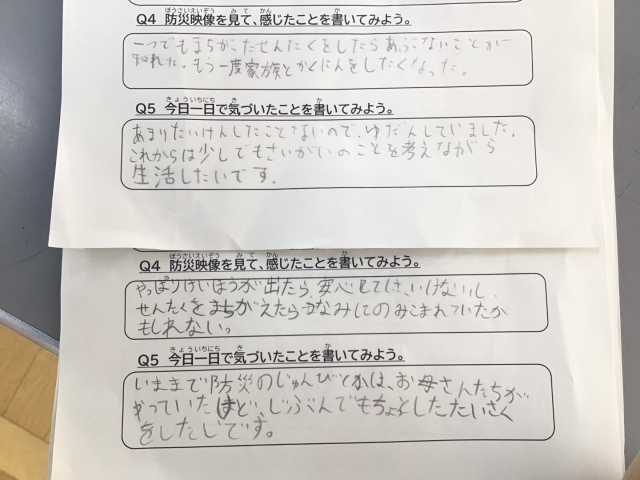 Q4 防災映像を見て、感じたことを書いてみよう。
一つでもまちがったせんたくをしたらあぶないことが
知れた。もう一度家族とかくにんをしたくなった。
Q5 今日一日で気づいたことを書いてみよう。
あまりたいけんしたことないので、ゆだんしていました。
これからは少しでもさいがいのことを考えながら
生活したいです。
Q4 防災映像を見て、感じたことを書いてみよう。
やっぱりけいほうが出たら、安心してはいけないし、
せんたくをまちがえたらつなみにのみこまれていたか
もしれない。
Q5 今日一日で気づいたことを書いてみよう。
いままで防災のじゅんびとかは、お母さんたちが
やっていたけど、じぶんでもちょっとしたたいさく
をしたいです。